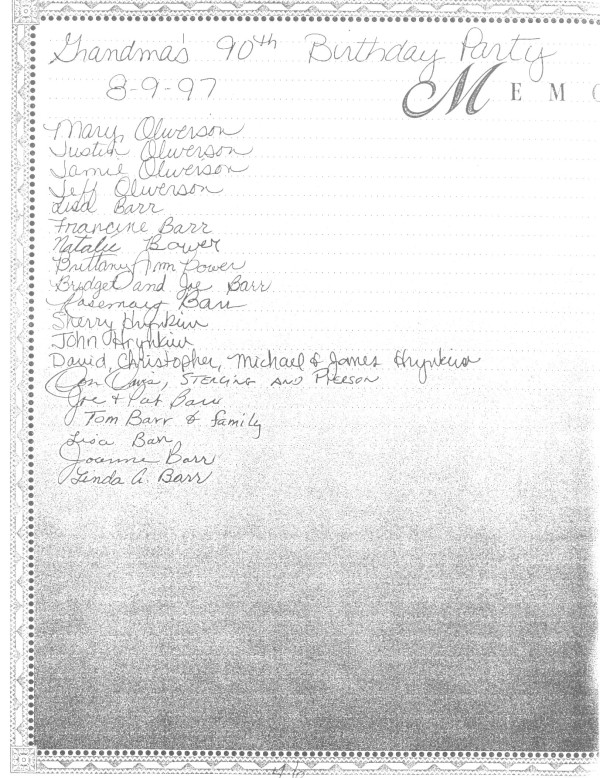 Grandma's 90th Birthday Party
8-9-97
MEMO
Mary Oliverson
Justin Oliverson
Jamie Oliverson
Jeff Oliverson
Lisa Barr
Francine Barr
Natalie Bower
Brittany Ann Power
Bridget and Joe Barr
Rosemary Barr
Sherry Hrynkiw
John Hrynkiw
David, Christopher, Michael & James Hrynkiw
STERLING AND PIERSON
Joe & Pat Barr
Tom Barr & family
Lisa Barr
Joanne Barr
Linda A. Barr